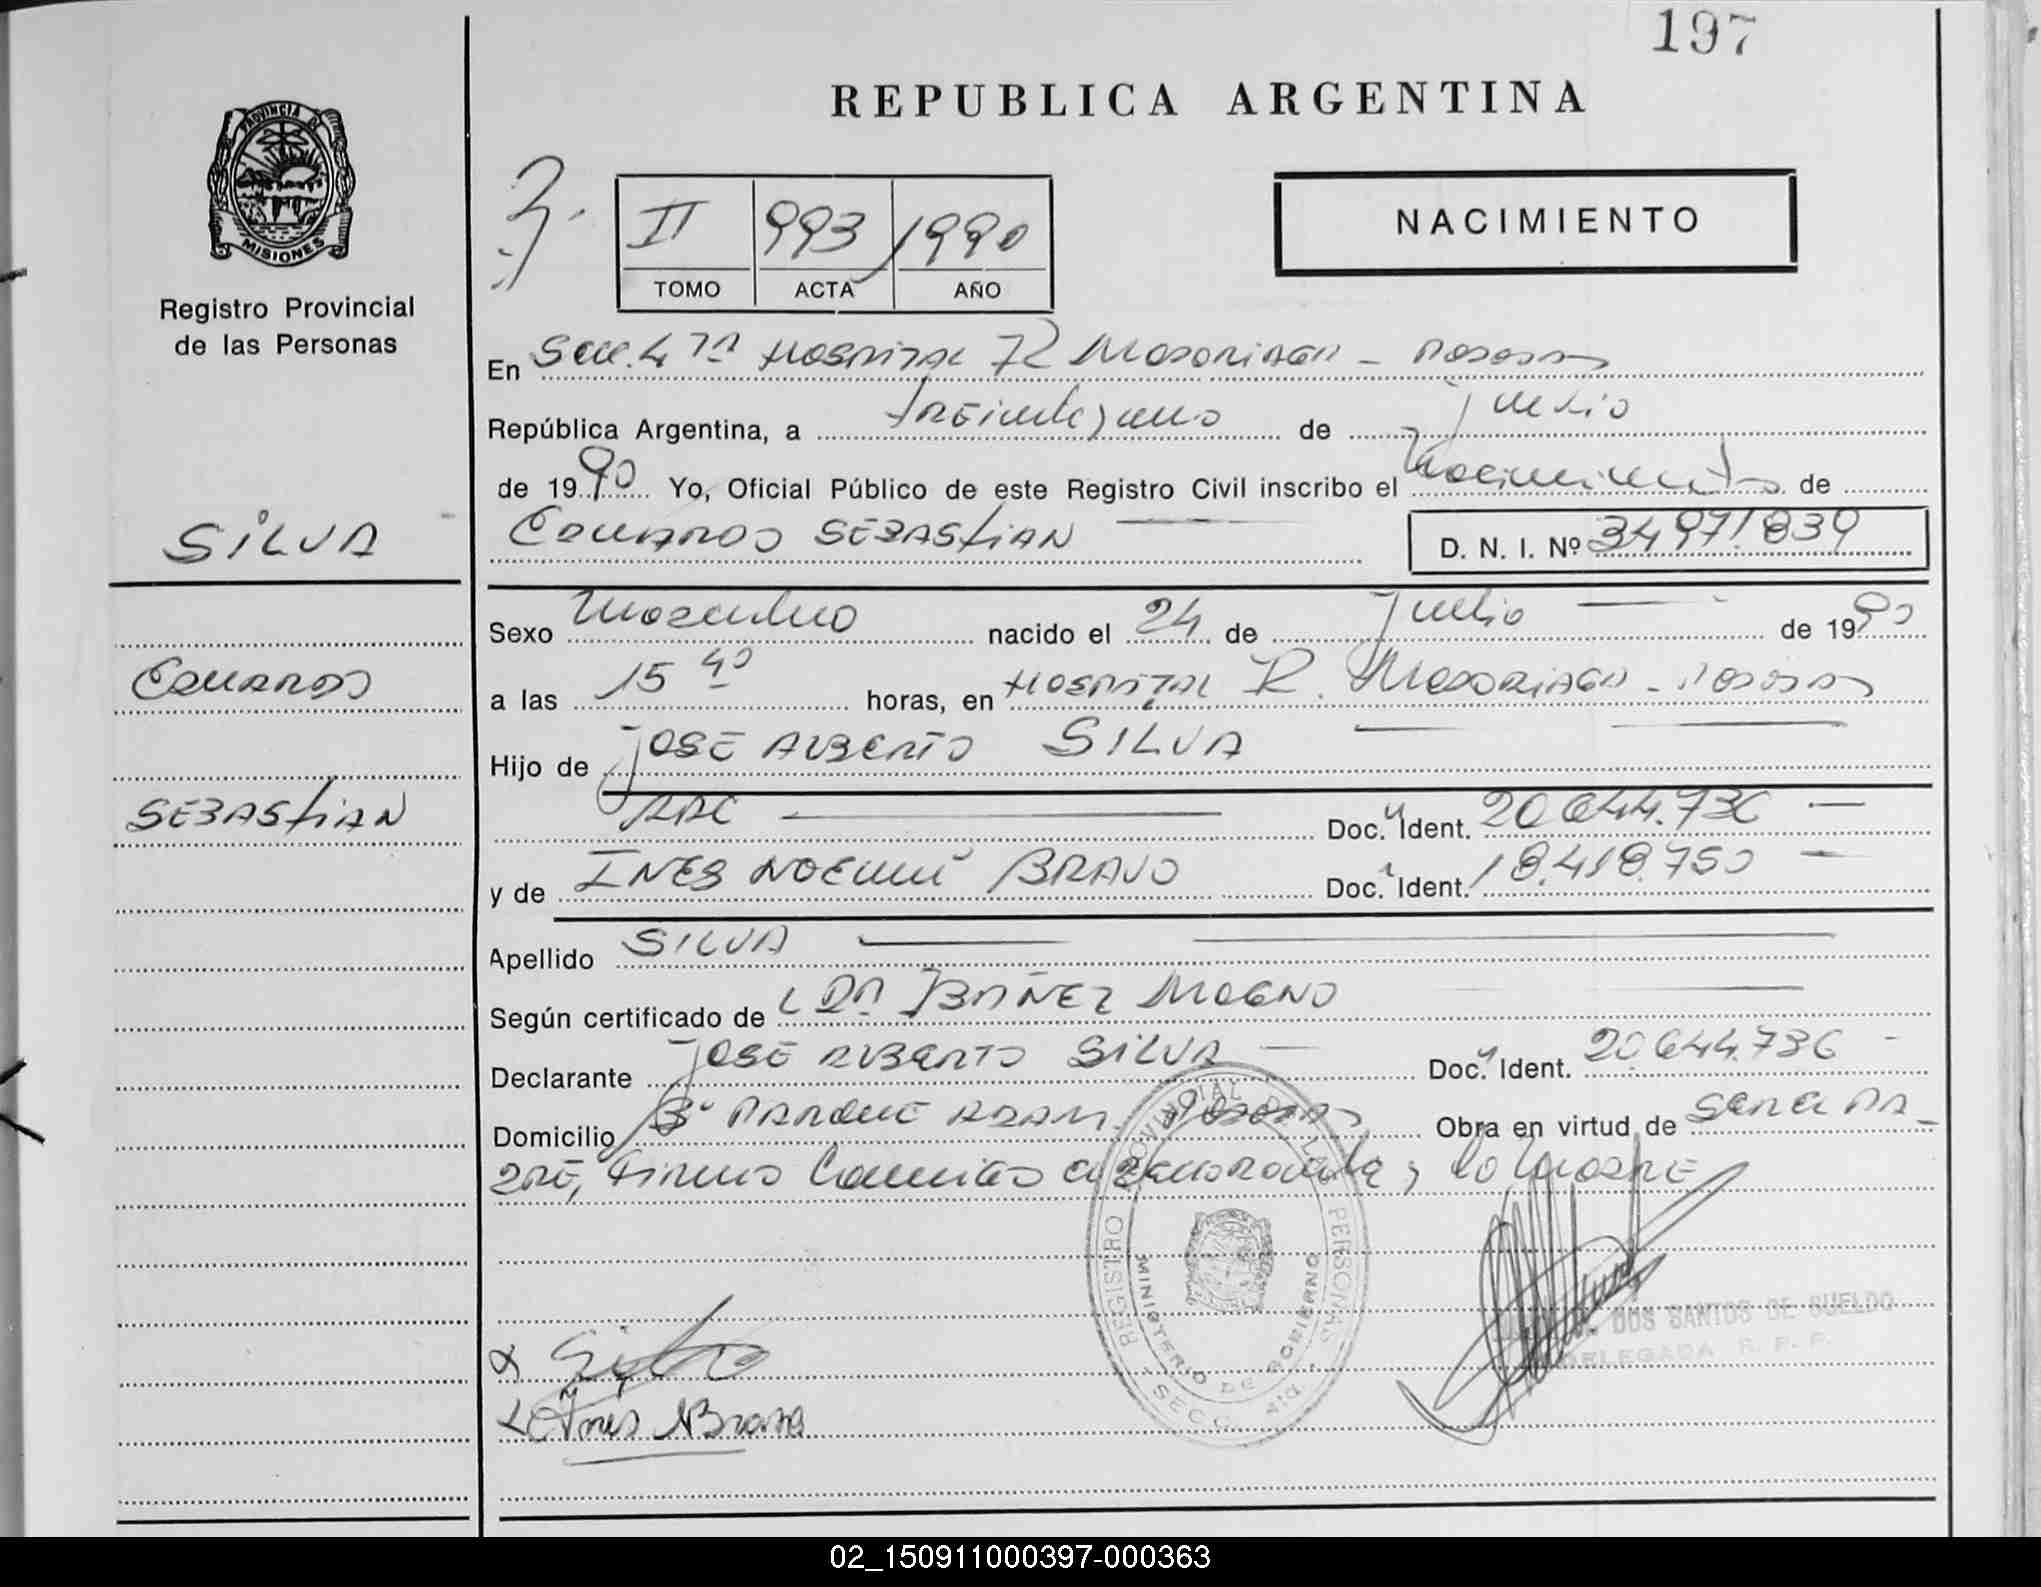 197
REPUBLICA ARGENTINA
PROVINCIA DE
MISIONES
Registro Provincial
de las Personas
II 993 1990
TOMO ACTA AÑO
NACIMIENTO
En Secc. 4ta Hospital R Madariaga - Posadas
República Argentina, a treinta y uno de julio
de 1990 Yo, Oficial Público de este Registro Civil inscribo el nacimiento de
SILVA
EDUARDO SEBASTIAN D. N. I. Nº 34971839
Sexo masculino nacido el 24 de julio de 1990
EDUARDO
a las 15 40 horas, en Hospital R. Madariaga - Posadas
Hijo de JOSE ALBERTO SILVA
SEBASTIAN
Doc. Ident. 20644.736 —
y de INES NOEMI BRAVO Doc. Ident. 18.418.750 —
Apellido SILVA
Según certificado de DR. IBAÑEZ MAGNO
Declarante JOSE ALBERTO SILVA — Doc. Ident. 20644.736 -
Domicilio Bº PARQUE ADAM. Posadas Obra en virtud de SER EL PA-
DRE, Firma Camilo y la Madre
REGISTRO PROVINCIAL DE LAS PERSONAS
MINISTERIO DE GOBIERNO
SECC. 4ta
DOS SANTOS DE SUELDO
DELEGADA R. P. P.
Silva
Ines N Bravo
02_150911000397-000363